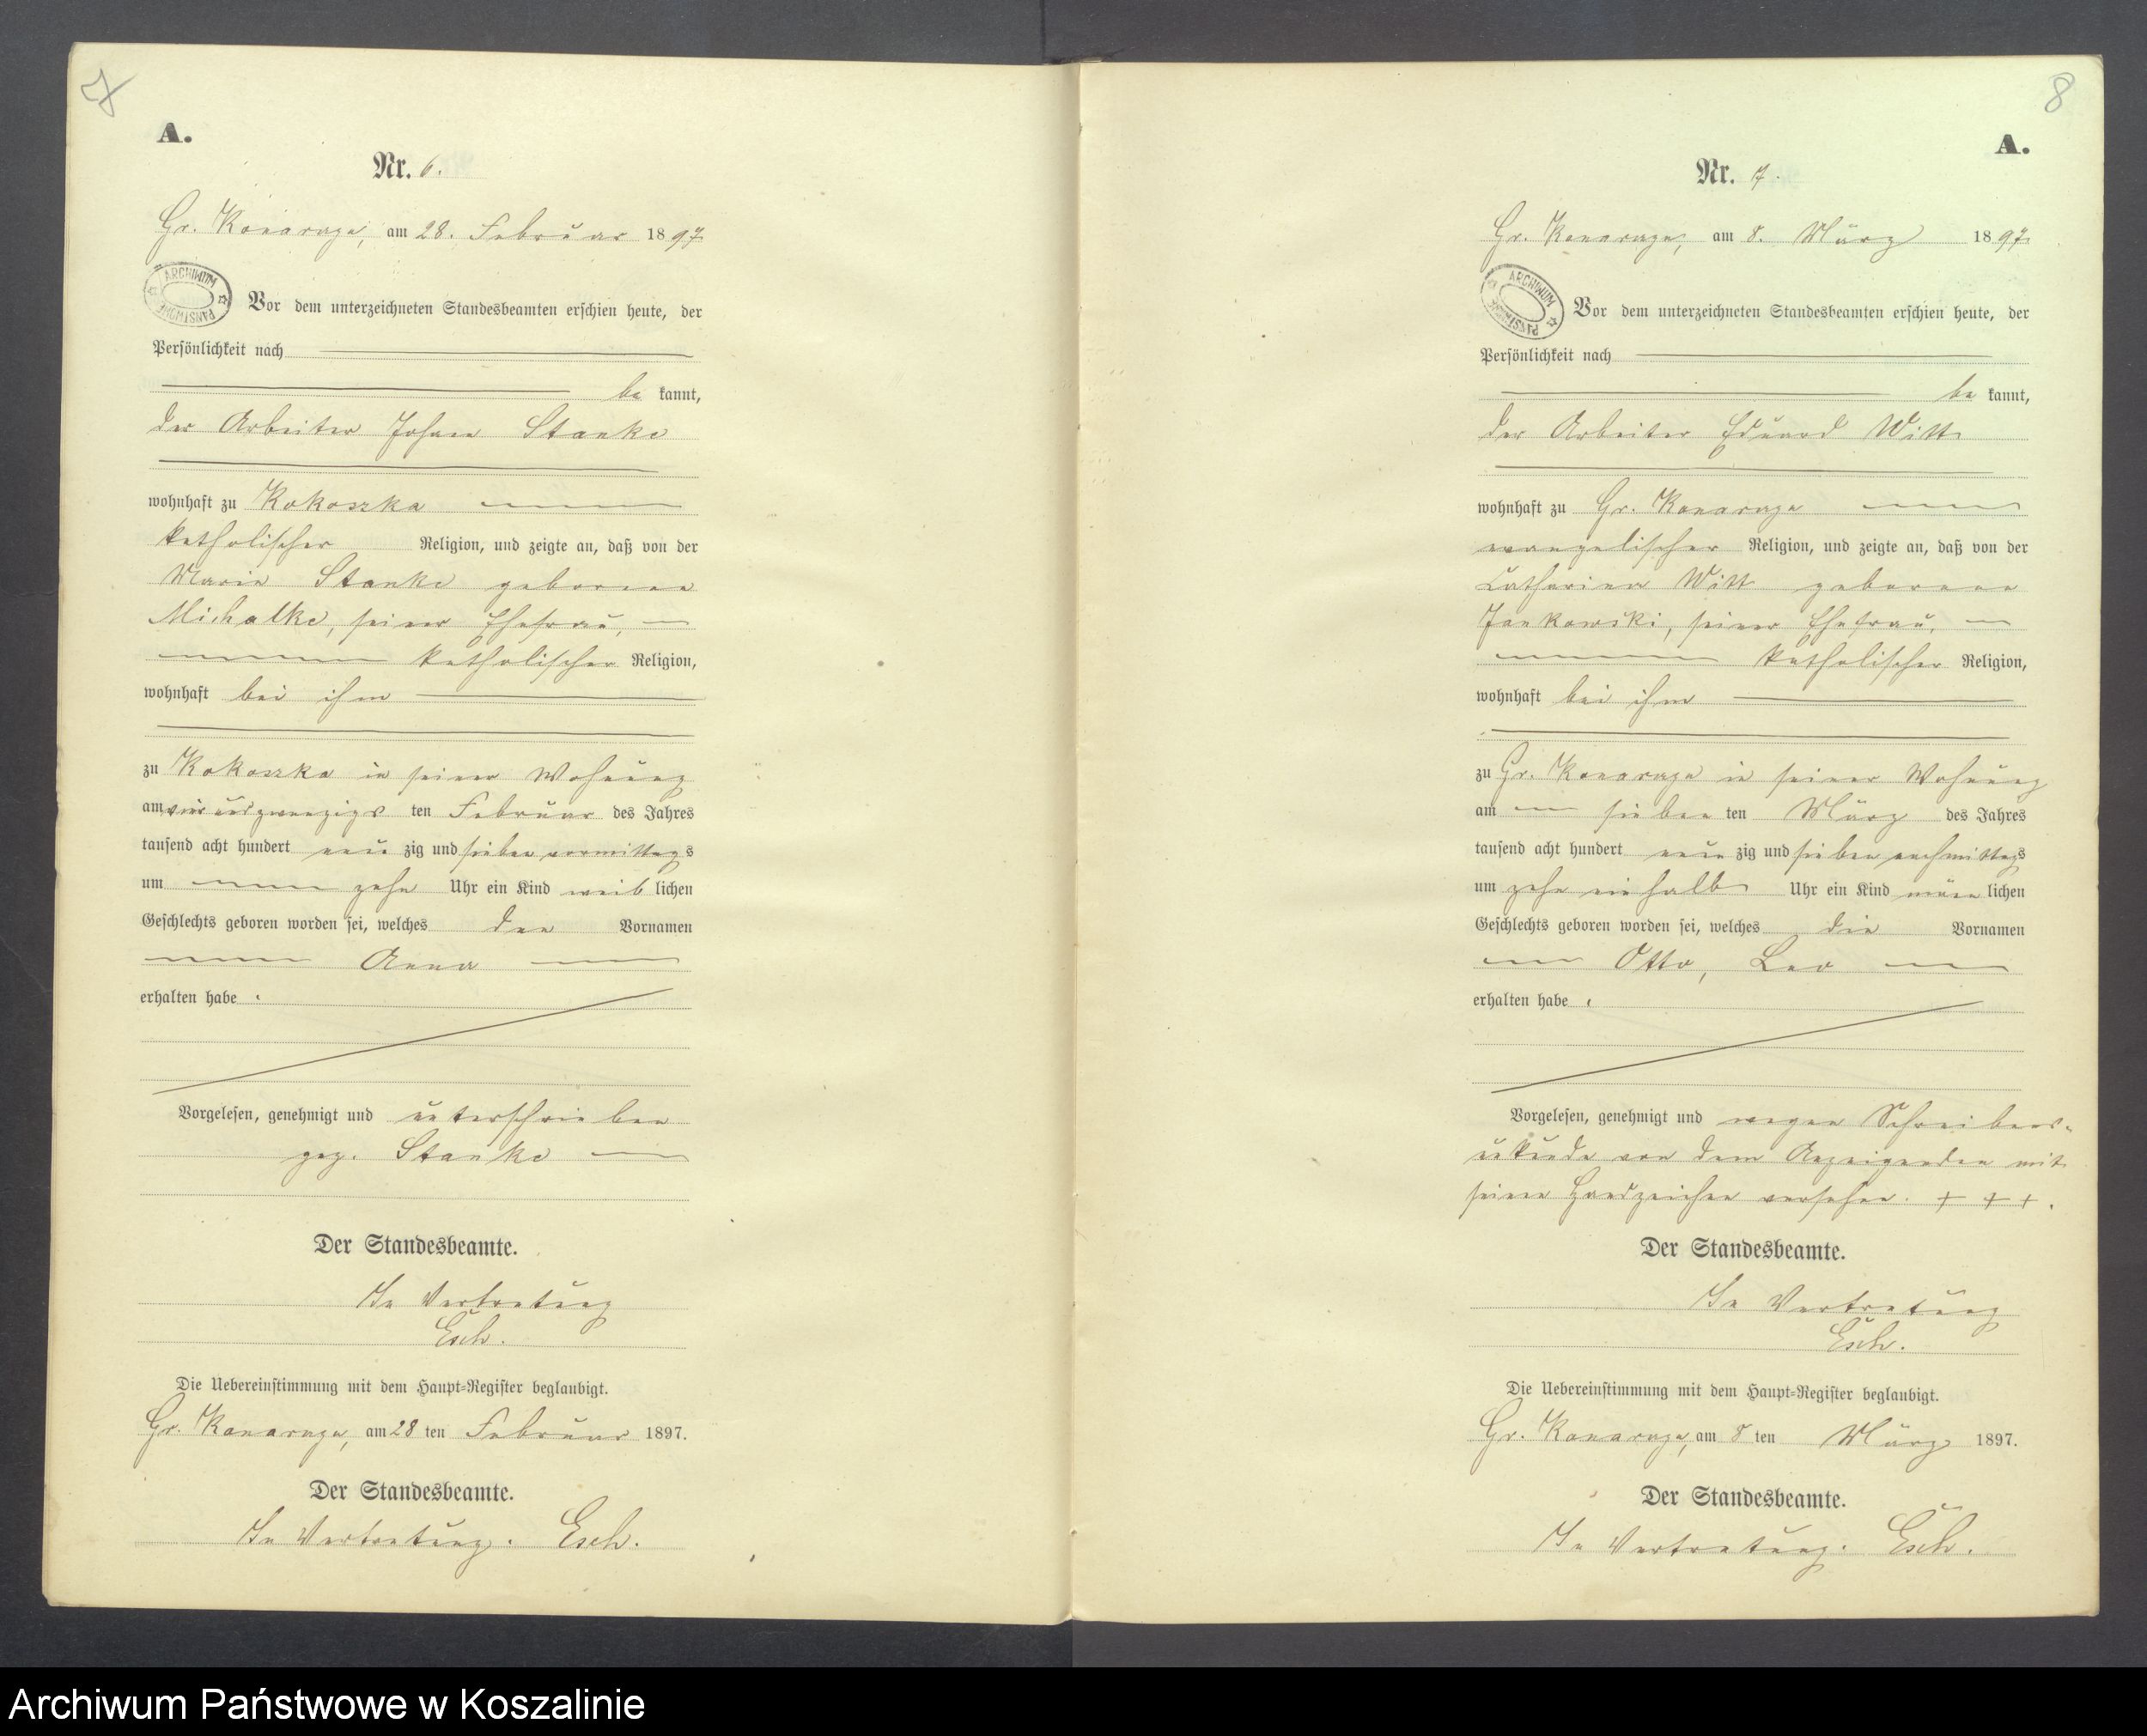 7
A.
Nr. 6.
Gr. Konarczyn, am 28. Februar 1897
ARCHIWUM PAŃSTWOWE
Vor dem unterzeichneten Standesbeamten erschien heute, der
Persönlichkeit nach
be kannt,
der Arbeiter Johann Stanke
wohnhaft zu Kokoszka
katholischer Religion, und zeigte an, daß von der
Marie Stanke geborenen
Michalke, seiner Ehefrau,
katholischer Religion,
wohnhaft bei ihm
zu Kokoszka in seiner Wohnung
am vierundzwanzigs ten Februar des Jahres
tausend acht hundert neun zig und sieben vormittags
um zehn Uhr ein Kind weib lichen
Geschlechts geboren worden sei, welches den Vornamen
Anna
erhalten habe.
Vorgelesen, genehmigt und unterschrieben
gez. Stanke
Der Standesbeamte.
In Vertretung
Esch.
Die Uebereinstimmung mit dem Haupt-Register beglaubigt.
Gr. Konarczyn, am 28 ten Februar 1897.
Der Standesbeamte.
In Vertretung. Esch.
8
A.
Nr. 7.
Gr. Konarczyn, am 8. März 1897
ARCHIWUM PAŃSTWOWE
Vor dem unterzeichneten Standesbeamten erschien heute, der
Persönlichkeit nach
be kannt,
der Arbeiter Eduard Witt
wohnhaft zu Gr. Konarczyn
evangelischer Religion, und zeigte an, daß von der
Catharina Witt geborenen
Jankowski, seiner Ehefrau,
katholischer Religion,
wohnhaft bei ihm
zu Gr. Konarczyn in seiner Wohnung
am sieben ten März des Jahres
tausend acht hundert neun zig und sieben nachmittags
um zehn einhalb Uhr ein Kind männ lichen
Geschlechts geboren worden sei, welches die Vornamen
Otto, Leo
erhalten habe.
Vorgelesen, genehmigt und wegen Schreibens-
unkunde von dem Anzeigenden mit
seinen Handzeichen versehen. + + +.
Der Standesbeamte.
In Vertretung
Esch.
Die Uebereinstimmung mit dem Haupt-Register beglaubigt.
Gr. Konarczyn, am 8 ten März 1897.
Der Standesbeamte.
In Vertretung. Esch.
Archiwum Państwowe w Koszalinie